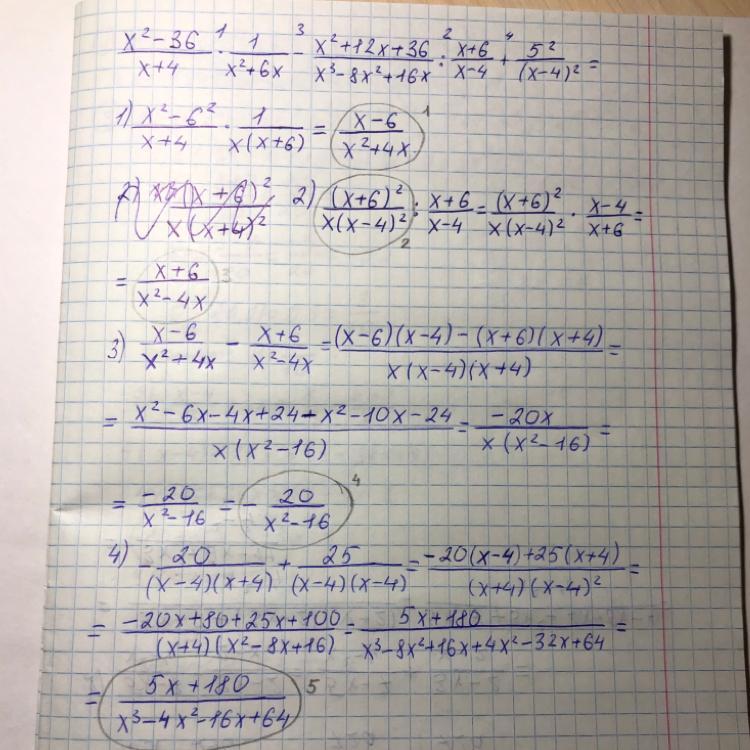 (x²-36)/(x+4) ·¹ 1/(x²+6x) -³ (x²+12x+36)/(x³-8x²+16x) :² (x+6)/(x-4) +⁴ 5²/(x-4)² =
1) (x²-6²)/(x+4) · 1/(x(x+6)) = (x-6)/(x²+4x) 1
2) (x+6)²/(x(x-4)²) : (x+6)/(x-4) = (x+6)²/(x(x-4)²) · (x-4)/(x+6) = 2
= (x+6)/(x²-4x) 3
3) (x-6)/(x²+4x) - (x+6)/(x²-4x) = ((x-6)(x-4)-(x+6)(x+4))/(x(x-4)(x+4)) =
= (x²-6x-4x+24-x²-10x-24)/(x(x²-16)) = (-20x)/(x(x²-16)) =
= (-20)/(x²-16) = - 20/(x²-16) 4
4) - 20/((x-4)(x+4)) + 25/((x-4)(x-4)) = (-20(x-4)+25(x+4))/((x+4)(x-4)²) =
= (-20x+80+25x+100)/((x+4)(x²-8x+16)) = (5x+180)/(x³-8x²+16x+4x²-32x+64) =
= (5x+180)/(x³-4x²-16x+64) 5